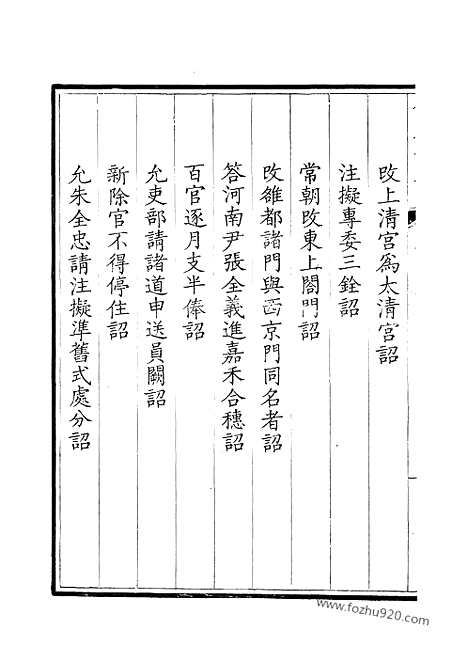 改上清宮爲太清宮詔
注擬專委三銓詔
常朝改東上閤門詔
改雒都諸門與西京門同名者詔
答河南尹張全義進嘉禾合穗詔
百官逐月支半俸詔
允吏部請諸道申送員闕詔
新除官不得停住詔
允朱全忠請注擬準舊式處分詔
www.fozhu920.com